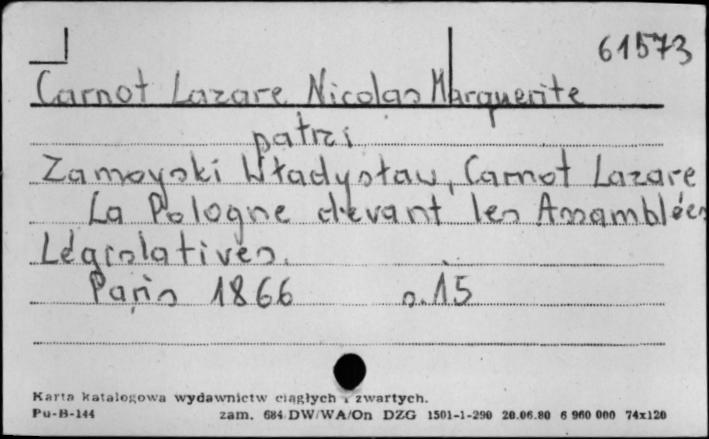 61573
Carnot Lazare Nicolas Marguerite
patrz:
Zamoyski Władysław, Carnot Lazare
La Pologne devant les Assamblées
Législatives.
Paris 1866 s. 15
Karta katalogowa wydawnictw ciągłych i zwartych.
Pu-B-144 zam. 684/DW/WA/On DZG 1501-1-290 20.06.80 6 960 000 74x120